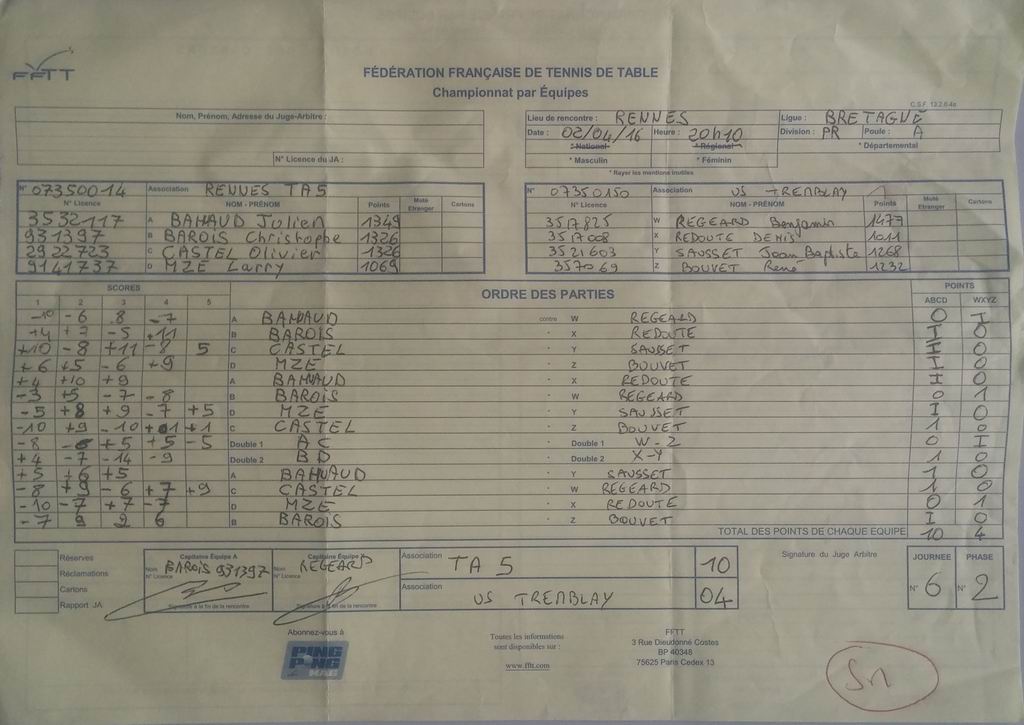 FFTT
FÉDÉRATION FRANÇAISE DE TENNIS DE TABLE
Championnat par Équipes
C.S.F. 13.2.6.4a
Nom, Prénom, Adresse du Juge-Arbitre :
N° Licence du JA :
Lieu de rencontre : RENNES Ligue : BRETAGNE
Date : 02/04/16 Heure : 20h10 Division : PR Poule : A
* National * Régional * Départemental
* Masculin * Féminin
* Rayer les mentions inutiles
N° 07350014 Association RENNES TA5
N° Licence NOM - PRÉNOM Points Muté Etranger Cartons
3532117 A BAHAUD Julien 1349
931397 B BAROIS Christophe 1326
2922723 C CASTEL Olivier 1326
9141737 D MZE Larry 1069
N° 07350150 Association US TREMBLAY 1
N° Licence NOM - PRÉNOM Points Muté Etranger Cartons
3517825 W REGEARD Benjamin 1477
3517008 X REDOUTE DENIS 1011
3521603 Y SAUSSET Jean Baptiste 1268
357069 Z BOUVET René 1232
SCORES ORDRE DES PARTIES POINTS
1 2 3 4 5 ABCD WXYZ
-10 -6 8 -7 A BAHAUD contre W REGEARD 0 I
+4 +7 -5 +11 B BAROIS - X REDOUTE I 0
+10 -8 +11 -8 5 C CASTEL - Y SAUSSET I 0
+6 +5 -6 +9 D MZE - Z BOUVET I 0
+4 +10 +9 A BAHAUD - X REDOUTE I 0
-3 +5 -7 -8 B BAROIS - W REGEARD 0 1
-5 +8 +9 -7 +5 D MZE - Y SAUSSET I 0
-10 +9 -10 +1 C CASTEL - Z BOUVET 1 0
-8 +5 +5 -5 Double 1 AC - Double 1 W-Z 0 I
+4 -7 -14 -9 Double 2 BD - Double 2 X-Y 1 0
+5 +6 +5 A BAHAUD - Y SAUSSET 1 0
-8 +9 -6 +7 +9 C CASTEL - W REGEARD 1 0
-10 -7 +7 -7 D MZE - X REDOUTE 0 1
-7 9 2 6 B BAROIS - Z BOUVET I 0
TOTAL DES POINTS DE CHAQUE EQUIPE 10 4
Réserves
Réclamations
Cartons
Rapport JA
Capitaine Équipe A
Nom BAROIS 931397
N° Licence
Signature à la fin de la rencontre
Capitaine Équipe X
Nom REGEARD
N° Licence
Signature à la fin de la rencontre
Association TA 5 10
Association US TREMBLAY 04
Signature du Juge Arbitre
JOURNEE PHASE
N° 6 N° 2
Abonnez-vous à
PING PONG MAG
Toutes les informations
sont disponibles sur :
www.fftt.com
FFTT
3 Rue Dieudonné Costes
BP 40348
75625 Paris Cedex 13